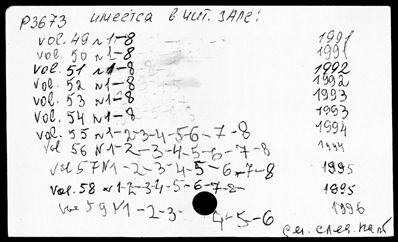 P3673 имеется в чит. зале:
vol. 49 N 1-8 1991
vol. 50 N 1-8 1991
vol. 51 N 1-8 1992
vol. 52 N 1-8 1992
vol. 53 N 1-8 1993
vol. 54 N 1-8 1993
vol. 55 N 1-2-3-4-5-6-7-8 1994
vol 56 N 1-2-3-4-5-6-7-8 1994
vol 57 N 1-2-3-4-5-6-7-8 1995
vol. 58 N 1-2-3-4-5-6-7-8- 1995
vol 59 N 1-2-3- 4-5-6 1996
см. след.